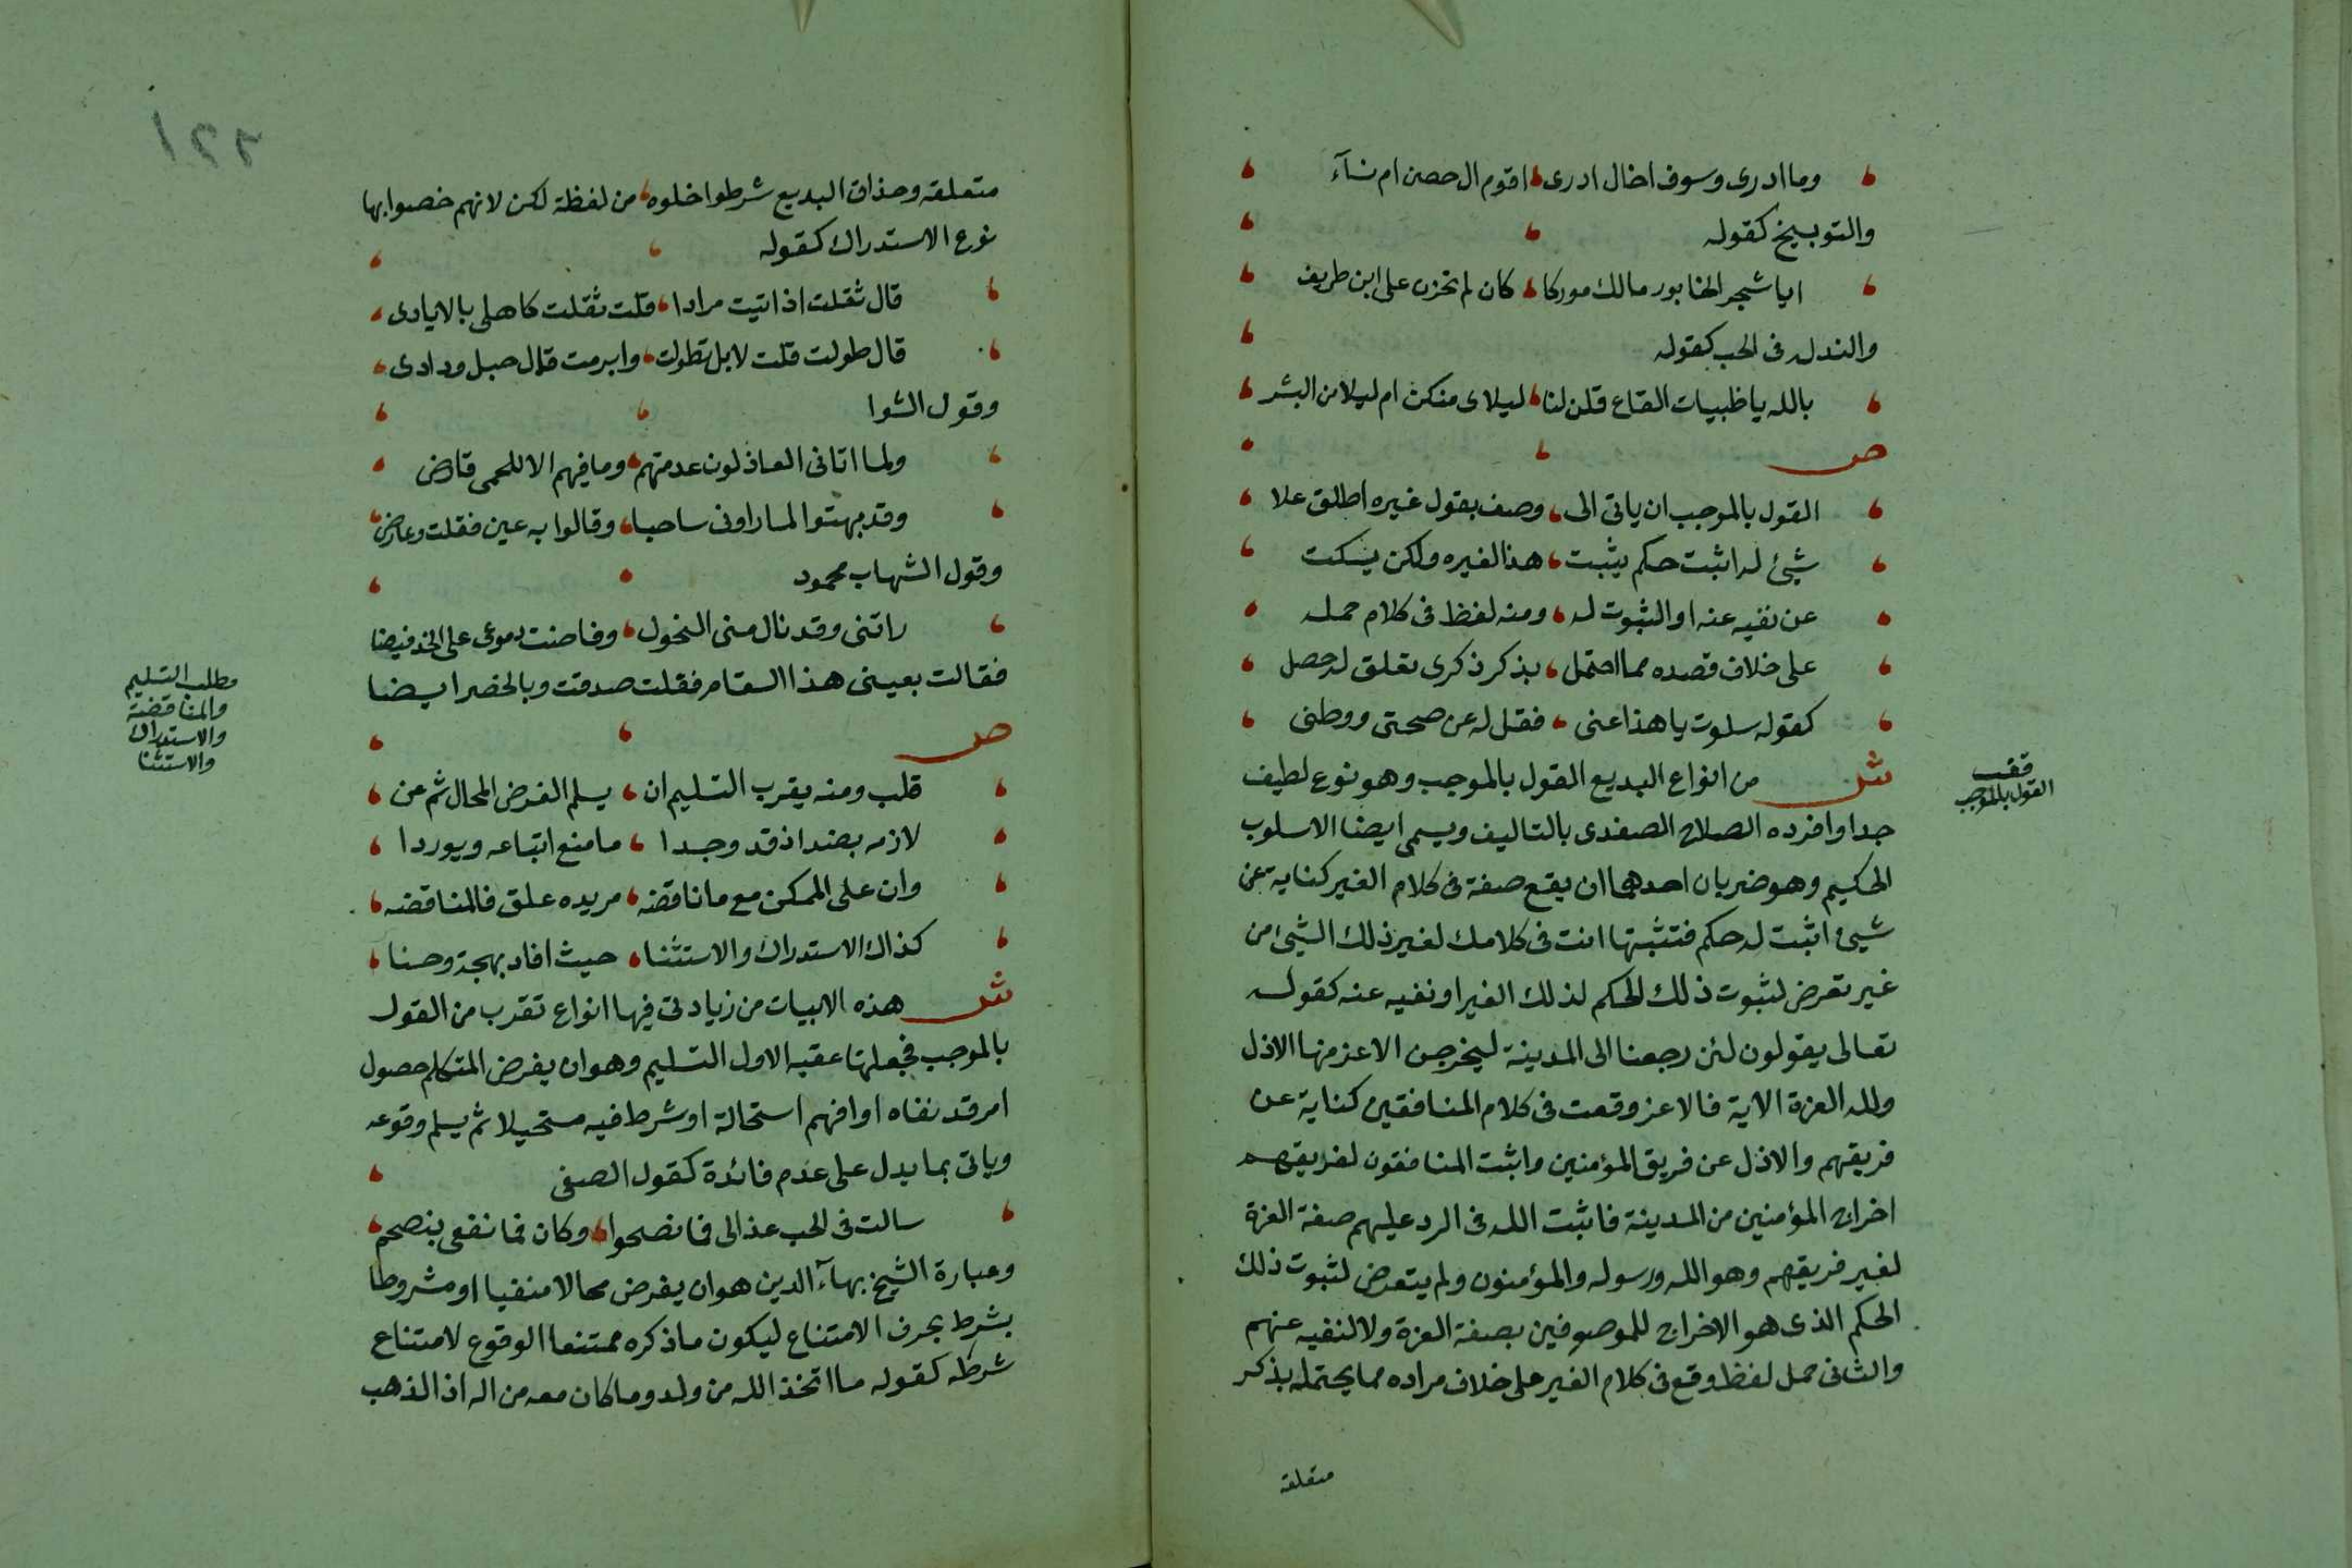 وما ادرى وسوف اخال ادرى، اقوم ال حصن ام نسآء
والتوبيخ كقوله
ايا شجر الخابور مالك مورقا، كان لم تحزن على ابن طريف
والتدله فى الحب كقوله
بالله يا ظبيات القاع قلن لنا، ليلاى منكن ام ليلا من البشر
ص
القول بالموجب ان ياتى الى، وصف بقول غيره اطلق علا
شيئ له اثبت حكم يثبت، هذا لغيره ولكن يسكت
عن نفيه عنه او الثبوت له، ومنه لفظ فى كلام حمله
على خلاف قصده مما احتمل، بذكر ذكرى تعلق له حصل
كقوله سلوت يا هذا عنى، فقل له عن صحتى ووطنى
ش من انواع البديع القول بالموجب وهو نوع لطيف
جدا وافرده الصلاح الصفدى بالتاليف ويسمى ايضا الاسلوب
الحكيم وهو ضربان احدهما ان يقع صفة فى كلام الغير كناية عن
شيئ اثبت له حكم فتثبتها انت فى كلامك لغير ذلك الشيئ من
غير تعرض لثبوت ذلك الحكم لذلك الغير او نفيه عنه كقوله
تعالى يقولون لئن رجعنا الى المدينة ليخرجن الاعز منها الاذل
ولله العزة الاية فالاعز وقعت فى كلام المنافقين كناية عن
فريقهم والاذل عن فريق المؤمنين واثبت المنافقون لفريقهم
اخراج المؤمنين من المدينة فاثبت الله فى الرد عليهم صفة العزة
لغير فريقهم وهو الله ورسوله والمؤمنون ولم يتعرض لثبوت ذلك
الحكم الذى هو الاخراج للموصوفين بصفة العزة ولا لنفيه عنهم
والثانى حمل لفظ وقع فى كلام الغير على خلاف مراده مما يحتمله بذكر
متعلقه
قف
القول بالموجب
٢٢١
متعلقه وحذاق البديع شرطوا خلوه من لفظة لكن لانهم خصوا بها
نوع الاستدراك كقوله
قال ثقلت اذ اتيت مرادا، قلت ثقلت كاهلى بالايادى
قال طولت قلت لا بل تطولت، وابرمت قال حبل ودادى
وقول الشوا
ولما اتانى العاذلون عدمتهم، وما فيهم الا للحمى قارض
وقد بهتوا لما راونى ساحبا، وقالوا به عين فقلت وعارض
وقول الشهاب محمود
راتنى وقد نال منى النحول، وفاضت دموعى على الخد فيضا
فقالت بعينى هذا السقام، فقلت صدقت وبالخصر ايضا
ص
قلب ومنه يقرب التسليم ان، يسلم الفرض المحال ثم عن
لازمه بضد اذ قد وجدا، ما منع اتباعه ويوردا
وان على الممكن مع ما ناقضه، مريده علق فالمناقضه
كذاك الاستدراك والاستثنا، حيث افاد بهجة وحسنا
ش هذه الابيات من زيادتى فيها انواع تقرب من القول
بالموجب فجعلتها عقبه الاول التسليم وهو ان يفرض المتكلم حصول
امر قد نفاه او افهم استحالة او شرط فيه مستحيلا ثم يسلم وقوعه
وياتى بما يدل على عدم فائدة كقول الصفى
سالت فى الحب عذالى فما نصحوا، وكان فما نفعى بنصحهم
وعبارة الشيخ بهآء الدين هو ان يفرض محالا منفيا او مشروطا
بشرط بحرف الامتناع ليكون ما ذكره ممتنعا الوقوع لامتناع
شرطه كقوله ما اتخذ الله من ولد وما كان معه من اله اذا لذهب
مطلب التسليم
والمناقضة
والاستدراك
والاستثنا